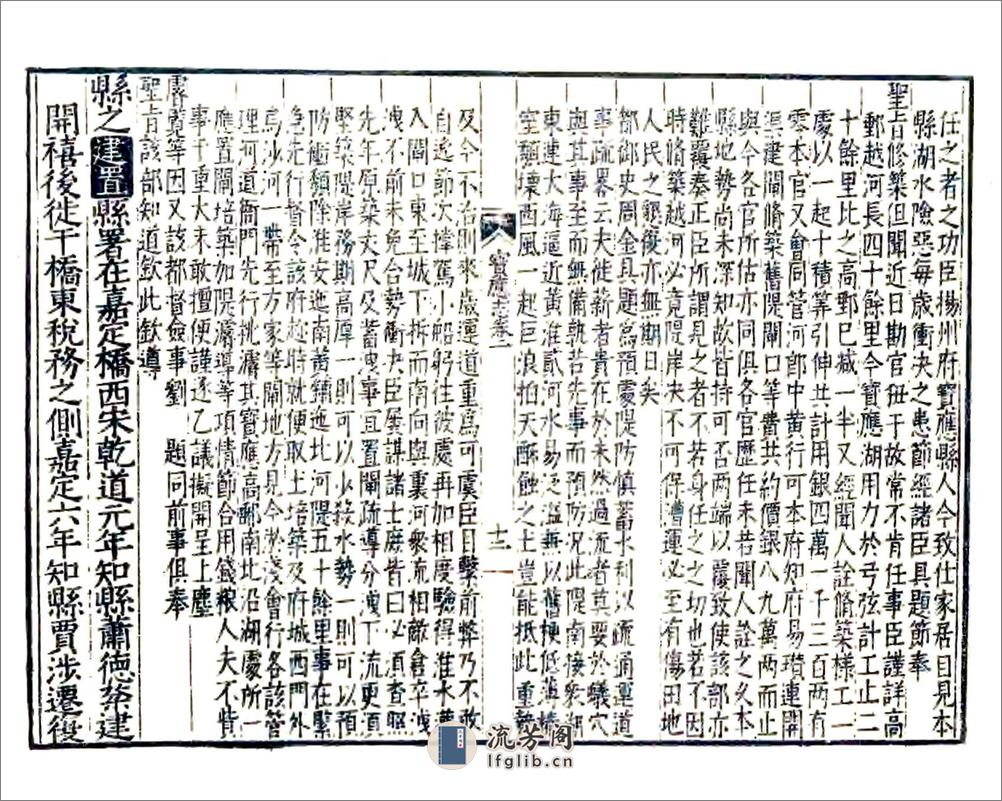 任之者之功臣揚州府寶應縣人今致仕家居目見本
縣湖水險惡每歲衝決之患節經諸臣具題節奉
聖旨修築但聞近日勘官扭干故常不肯任事臣謹詳高
郵越河長四十餘里今寶應湖用力於弓弦計工止二
十餘里比之高郵已減一半又經聞人詮脩築樣工一
處以一起十積筭引伸共計用銀四萬一千三百兩有
零本官又會同管河郎中黃行可本府知府易瓚連開
渠建閘脩築舊隄閘口等費共約價銀八九萬兩而止
與今各官所估亦同但各官歷任未若聞人詮之久本
縣地勢尚未深知故皆持可否兩端以覆致使該部亦
難覆奏正臣所謂見之者不若身任之之切也若不因
時脩築越河必竟隄岸決不可保漕運必至有傷田地
人民之飢餒亦無期日矣
都御史周金具題為預處隄防慎蓄水利以疏通運道
事疏畧云夫徙薪者貴在於未然過流者莫要於蟻穴
與其事至而無備孰若先事而預防況此隄南接眾湖
東連大海逼近黃淮貳河水易泛溢無以舊梗低薄樁
窒頹壞西風一起巨浪拍天酥蝕之土豈能抵此重勢
寶應志卷二
十三
及今不治則來歲運道重為可虞臣目擊前弊乃不敢
自逸節次撐駕小船躬往彼處再加相度驗得淮水
入閘口東至城下折而南向與裏河眾流相敵倉卒洩
洩不前未免合勢衝決臣屢謀諸士庶皆曰必湏查照
先年原築丈尺及蓄洩事宜置閘疏導分洩下流更湏
堅築隄岸務期高厚一則可以小殺水勢一則可以預
防衝頹除淮安迤南黃鋪迤北河隄五十餘里事在緊
急先行督令該府趁時就便取土培築及府城西門外
烏沙河一帶至方家等閘地方見今淤淺會行各該管
理河道衙門先行挑濬其寶應高郵南北沿湖處所一
應置閘培築加隄濬導等項情節合用錢粮人夫不貲
事干重大未敢擅便謹逐乙議擬開呈上塵
睿覽等因又該都督僉事劉 題同前事俱奉
聖旨該部知道欽此欽導
縣之建置縣署在嘉定橋西宋乾道元年知縣蕭德棻建
開禧後徙干橋東稅務之側嘉定六年知縣賈涉遷復
流芳阁
lfglib.cn